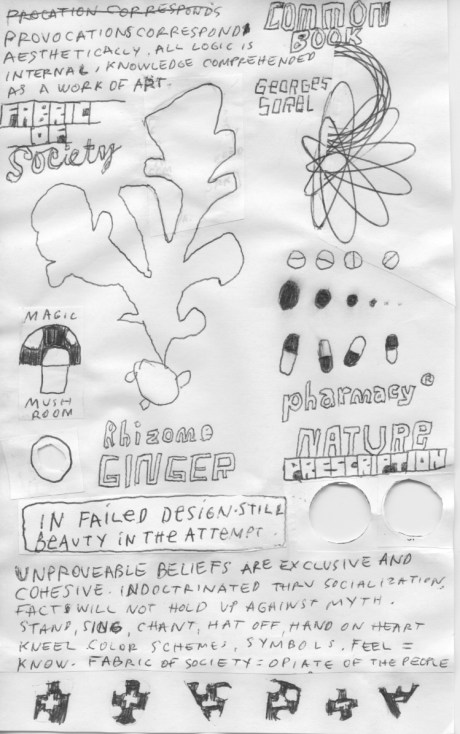 PROCATION CORRESPONDS
PROVOCATIONS CORRESPOND
AESTHETICALLY. ALL LOGIC IS
INTERNAL, KNOWLEDGE COMPREHENDED
AS A WORK OF ART.
FABRIC
OF
Society
COMMON
BOOK
GEORGES
SOREL
MAGIC
MUSH
ROOM
pharmacy®
Rhizome
GINGER
NATURE
PRESCRIPTION
IN FAILED DESIGN. STILL
BEAUTY IN THE ATTEMPT.
UNPROVEABLE BELIEFS ARE EXCLUSIVE AND
COHESIVE. INDOCTRINATED THRU SOCIALIZATION,
FACTS WILL NOT HOLD UP AGAINST MYTH.
STAND, SING, CHANT, HAT OFF, HAND ON HEART
KNEEL COLOR SCHEMES, SYMBOLS. FEEL =
KNOW. FABRIC OF SOCIETY = OPIATE OF THE PEOPLE